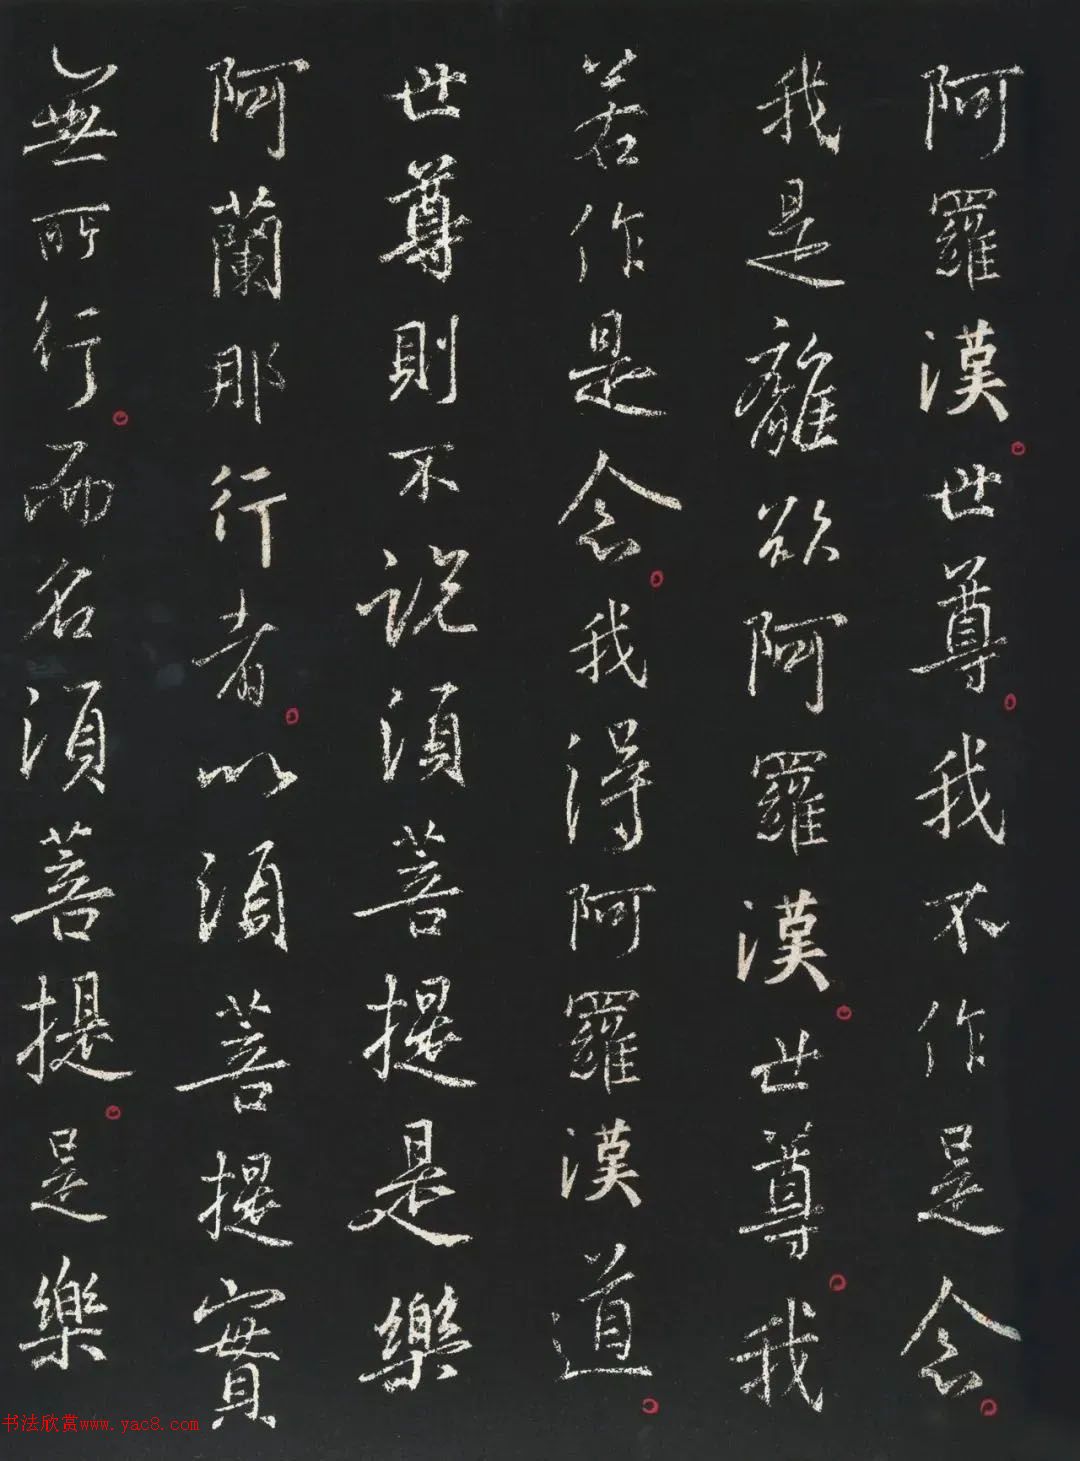 阿羅漢世尊我不作是念
我是離欲阿羅漢世尊我
若作是念我得阿羅漢道
世尊則不説須菩提是樂
阿蘭那行者以須菩提實
無所行而名須菩提是樂
书法欣赏www.yac8.com